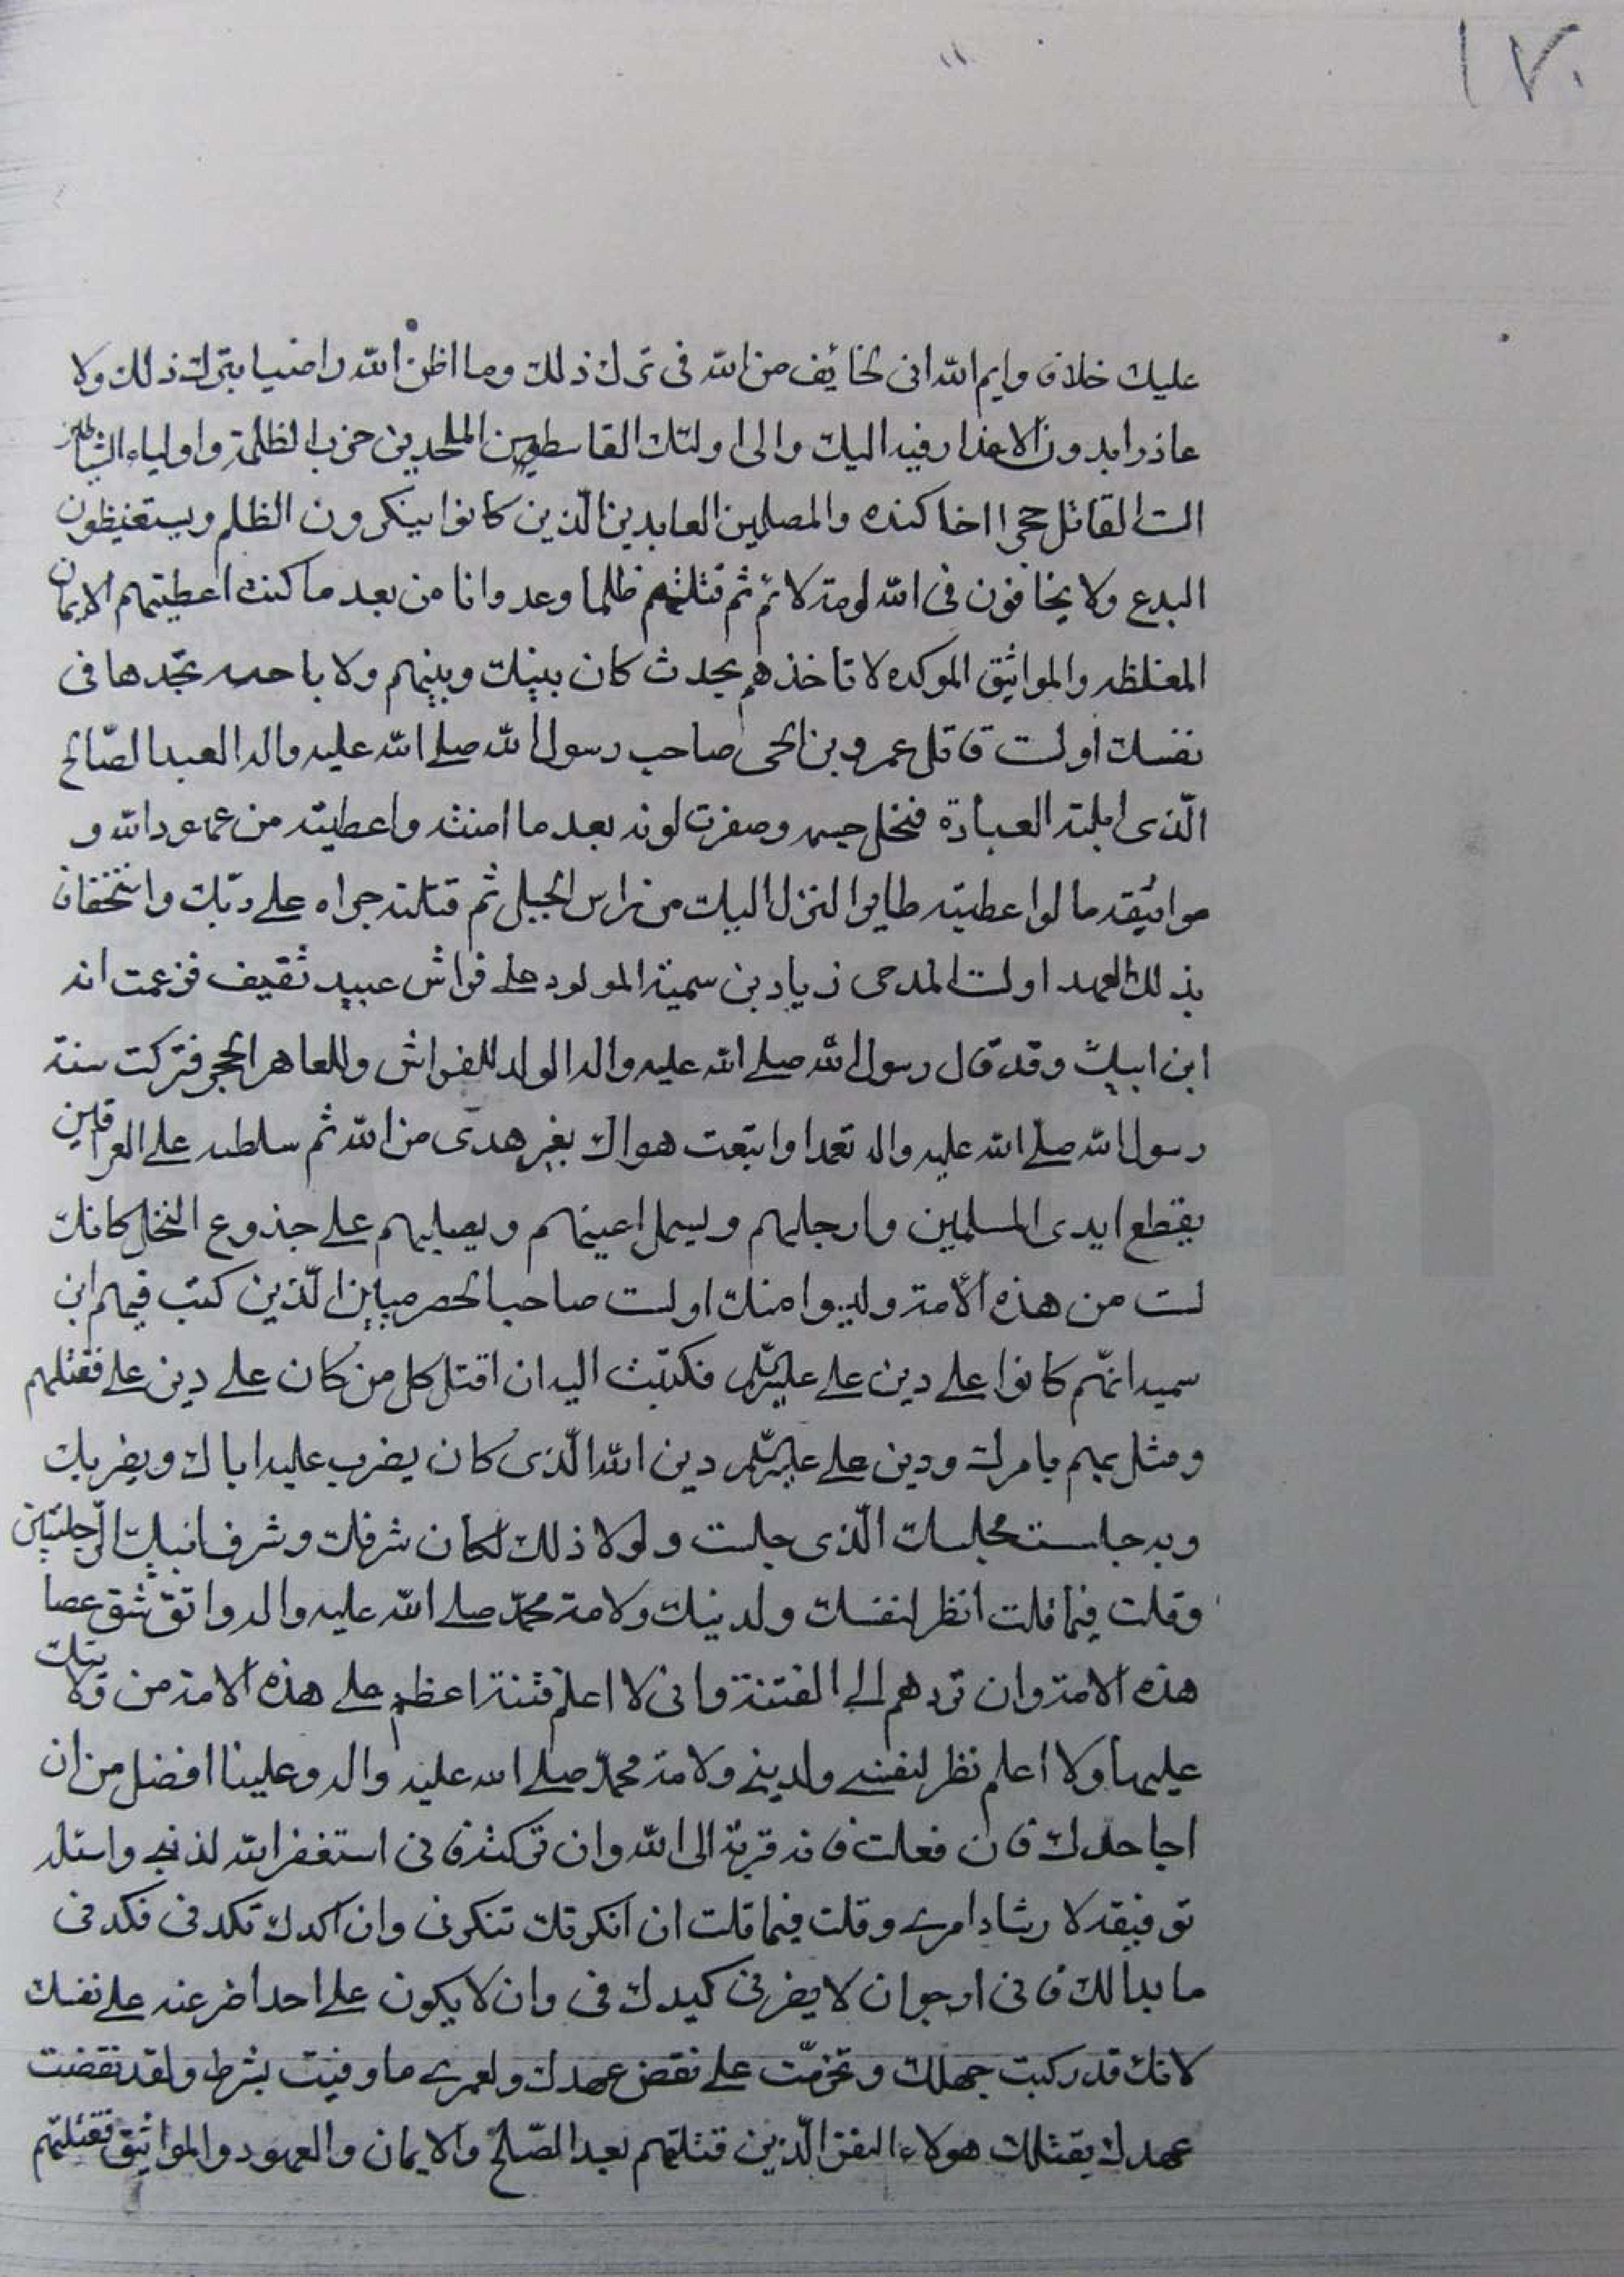 ١٧٠
عليك خلافا وايم الله انى لخائف من الله فى ترك ذلك وما اظن الله راضيا بترك ذلك ولا
عاذرا بدون الاعذار فيه اليك والى اولئك القاسطين الملحدين حزب الظلمة واولياء الشياطين
الست القاتل حجرا اخا كنده والمصلين العابدين الّذين كانوا ينكرون الظلم ويستعظمون
البدع ولا يخافون فى الله لومة لائم ثم قتلتهم ظلما وعدوانا من بعد ما كنت اعطيتهم الايمان
المغلظه والمواثيق الموكده لا تاخذهم بحدث كان بينك وبينهم ولا باحنه تجدها فى
نفسك اولست قاتل عمرو بن الحمى صاحب رسول الله صلى الله عليه واله العبد الصّالح
الّذى ابلته العبادة فنحل جسمه وصفرت لونه بعد ما امنته واعطيته من عهود الله و
مواثيقه ما لو اعطيته طايرا لنزل اليك من راس الجبل ثم قتلته جراه على ربّك واستخفافا
بذلك العهد اولست المدعى زياد بن سمية المولود على فراش عبيد ثقيف فزعمت انه
ابن ابيك وقد قال رسول الله صلى الله عليه واله الولد للفراش وللعاهر الحجر فتركت سنة
رسول الله صلى الله عليه واله تعمدا واتبعت هواك بغير هدى من الله ثم سلطته على العراقين
يقطع ايدى المسلمين وارجلهم ويسمل اعينهم ويصلبهم على جذوع النخل كانك
لست من هذه الامة وليسوا منك اولست صاحب الحضرميين الّذين كتب فيهم ابن
سميه انّهم كانوا على دين على عليه السّلم فكتبت اليه ان اقتل كل من كان على دين على فقتلهم
ومثل بهم بامرك ودين على عليه السّلم دين الله الّذى كان يضرب عليه اباك ويضربك
وبه جلست مجلسك الّذى جلست ولولا ذلك لكان شرفك وشرف ابيك الرّحلتين
وقلت فيما قلت انظر لنفسك ولدينك ولامة محمّد صلى الله عليه واله واتق شق عصا
هذه الامة وان تردهم الى الفتنة وانى لا اعلم فتنة اعظم على هذه الامة من ولايتك
عليها ولا اعلم نظر لنفسى ولدينى ولامة محمّد صلى الله عليه واله وعلينا افضل من ان
اجاهدك فان فعلت فانه قربة الى الله وان تركته فانى استغفر الله لذنبى واسئله
توفيقه لارشاد امرى وقلت فيما قلت ان انكرتك تنكرنى وان اكدك تكدنى فكدنى
ما بدا لك فانى ارجو ان لا يضرنى كيدك فى وان لا يكون على احد اضر عنه على نفسك
لانك قد ركبت جهلك وتحرّمت على نقض عهدك ولعمرى ما وفيت بشرط ولقد نقضت
عهدك بقتلك هولاء النفر الّذين قتلتهم بعد الصّلح والايمان والعهود والمواثيق فقتلتهم